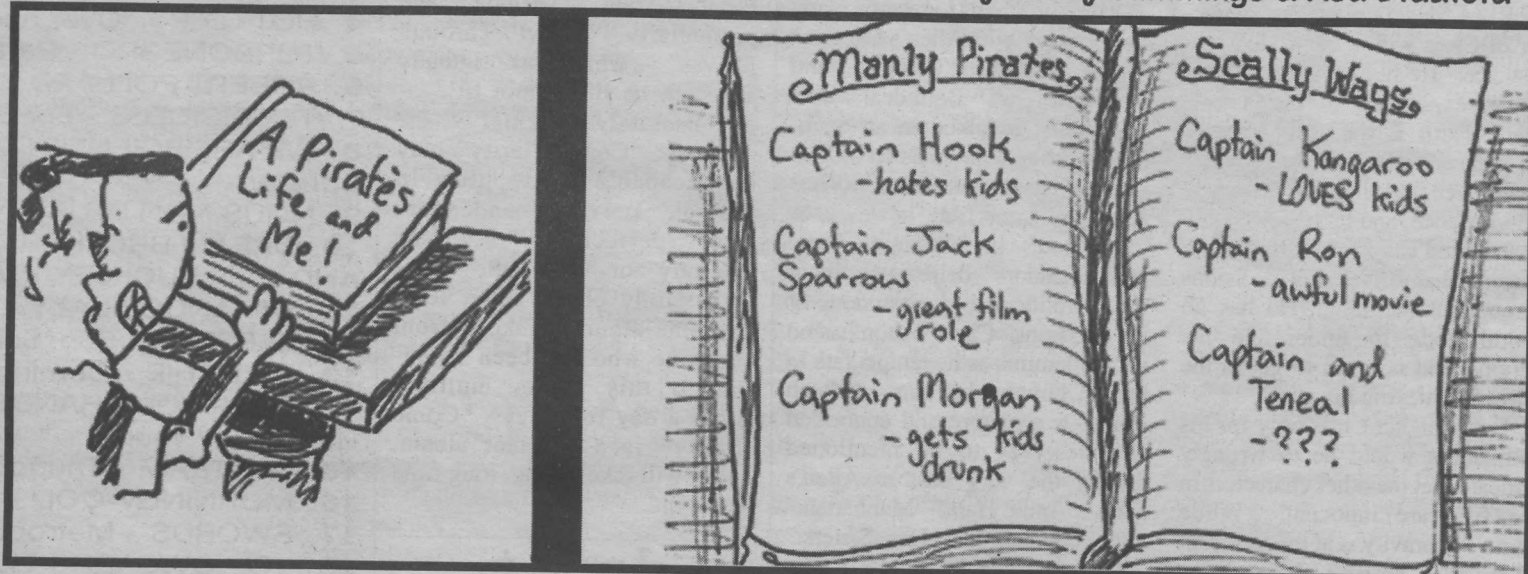 A Pirate's
Life and
Me!
Manly Pirates
Captain Hook
-hates kids
Captain Jack
Sparrow
-great film
role
Captain Morgan
-gets kids
drunk
Scally Wags
Captain Kangaroo
-LOVES kids
Captain Ron
-awful movie
Captain and
Teneal
-???